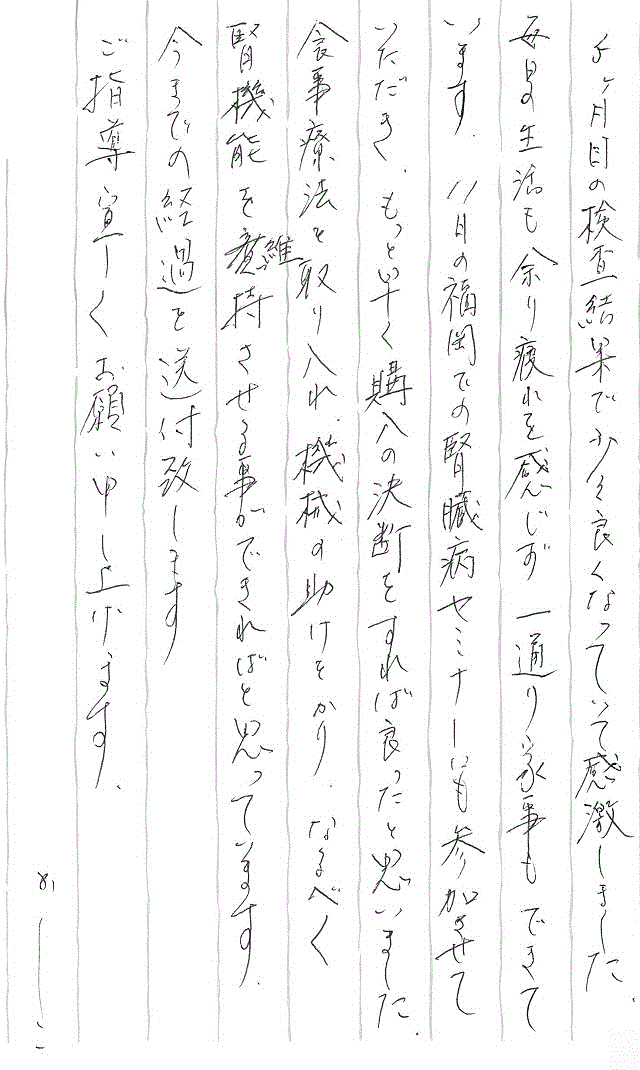 5ヶ月目の検査結果で少々良くなっていて感激しました.
毎日の生活も余り疲れを感じず 一通り家事もできて
います. 11月の福岡での腎臓病セミナーにも参加させて
いただき. もっと早く購入の決断をすれば良ったと思いました.
食事療法を取り入れ. 機械の助けをかり. なるべく
腎機能を維持させる事ができればと思っています.
今までの経過を送付致します
ご指導宜しくお願い申し上げます.